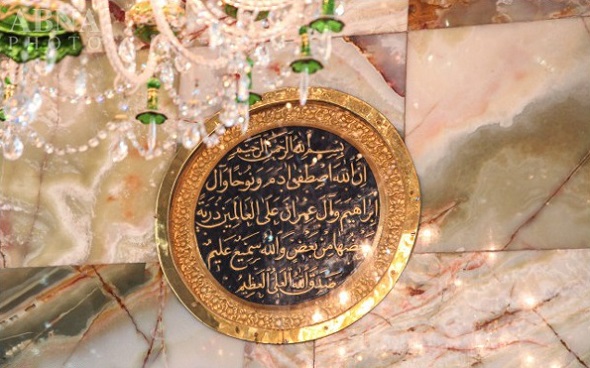 ABNA
PHOTO
بسم الله الرحمن الرحيم
ان الله اصطفى ادم ونوحا وآل
ابراهيم وآل عمران على العالمين ذرية
بعضها من بعض والله سميع عليم
صدق الله العلي العظيم